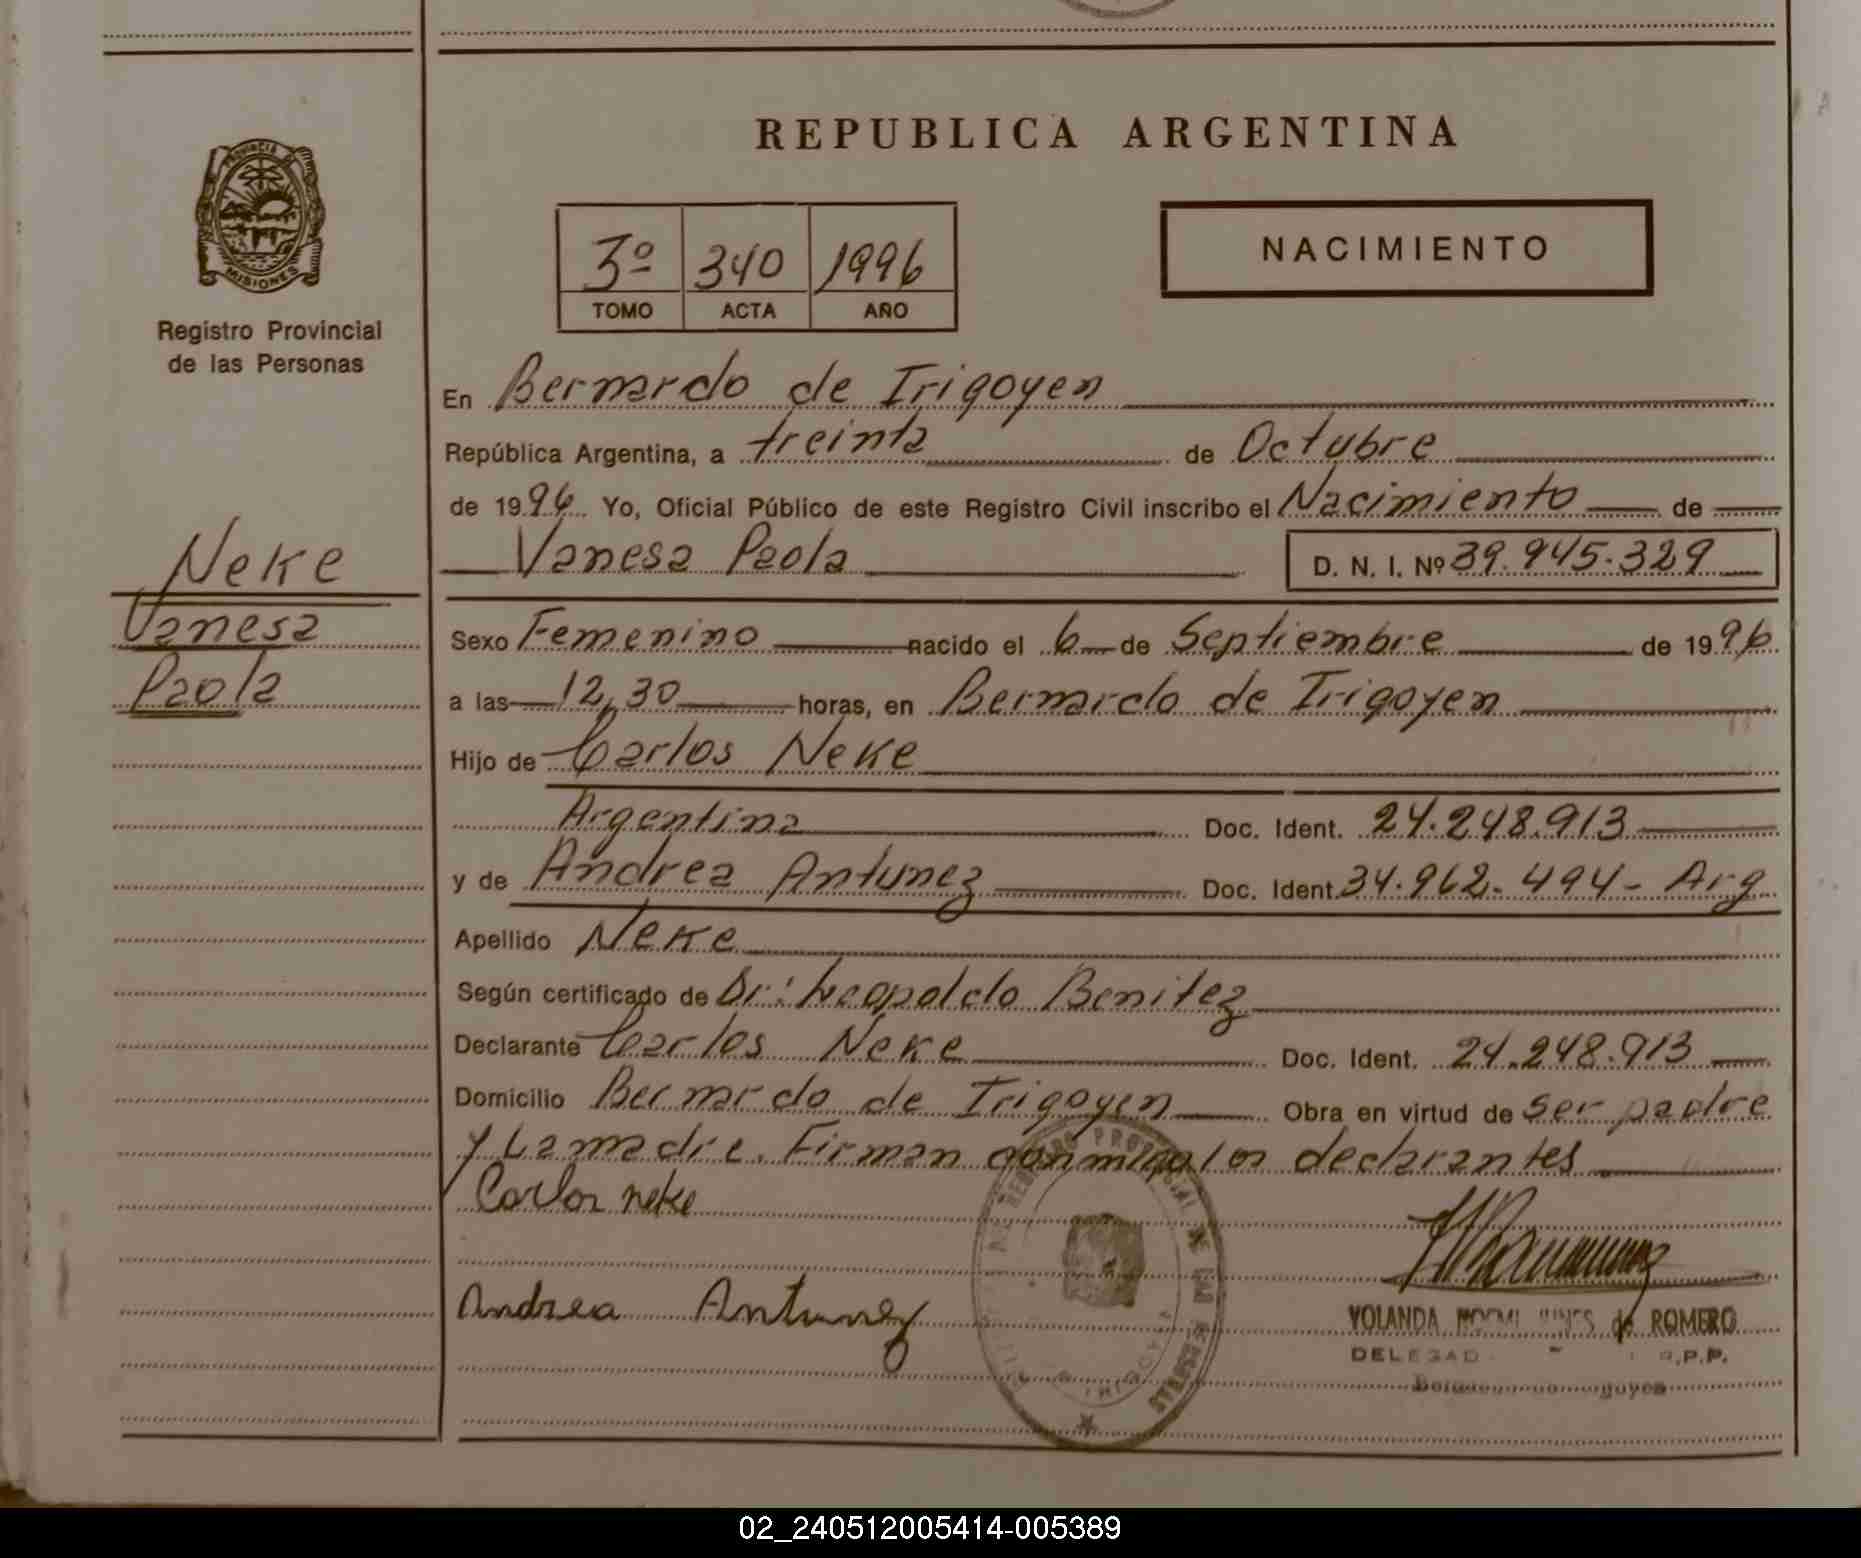 REPUBLICA ARGENTINA
PROVINCIA DE
MISIONES
Registro Provincial
de las Personas
3º 340 1996
TOMO ACTA AÑO
NACIMIENTO
En Bernardo de Irigoyen
República Argentina, a treinta de Octubre
de 1996 Yo, Oficial Público de este Registro Civil inscribo el Nacimiento de
Vanesa Paola D. N. I. Nº 39.945.329
Neke
Vanesa
Paola
Sexo Femenino nacido el 6 de Septiembre de 1996
a las 12,30 horas, en Bernardo de Irigoyen
Hijo de Carlos Neke
Argentina Doc. Ident. 24.248.913
y de Andrea Antunez Doc. Ident. 34.962.494- Arg
Apellido Neke
Según certificado de Dr: Leopoldo Benitez
Declarante Carlos Neke Doc. Ident. 24.248.913
Domicilio Bernardo de Irigoyen Obra en virtud de ser padre
y La madre. Firman conmigo los declarantes
Carlos neke
Andrea Antunez
YOLANDA NOEMI de ROMERO
R.P.P.
02_240512005414-005389